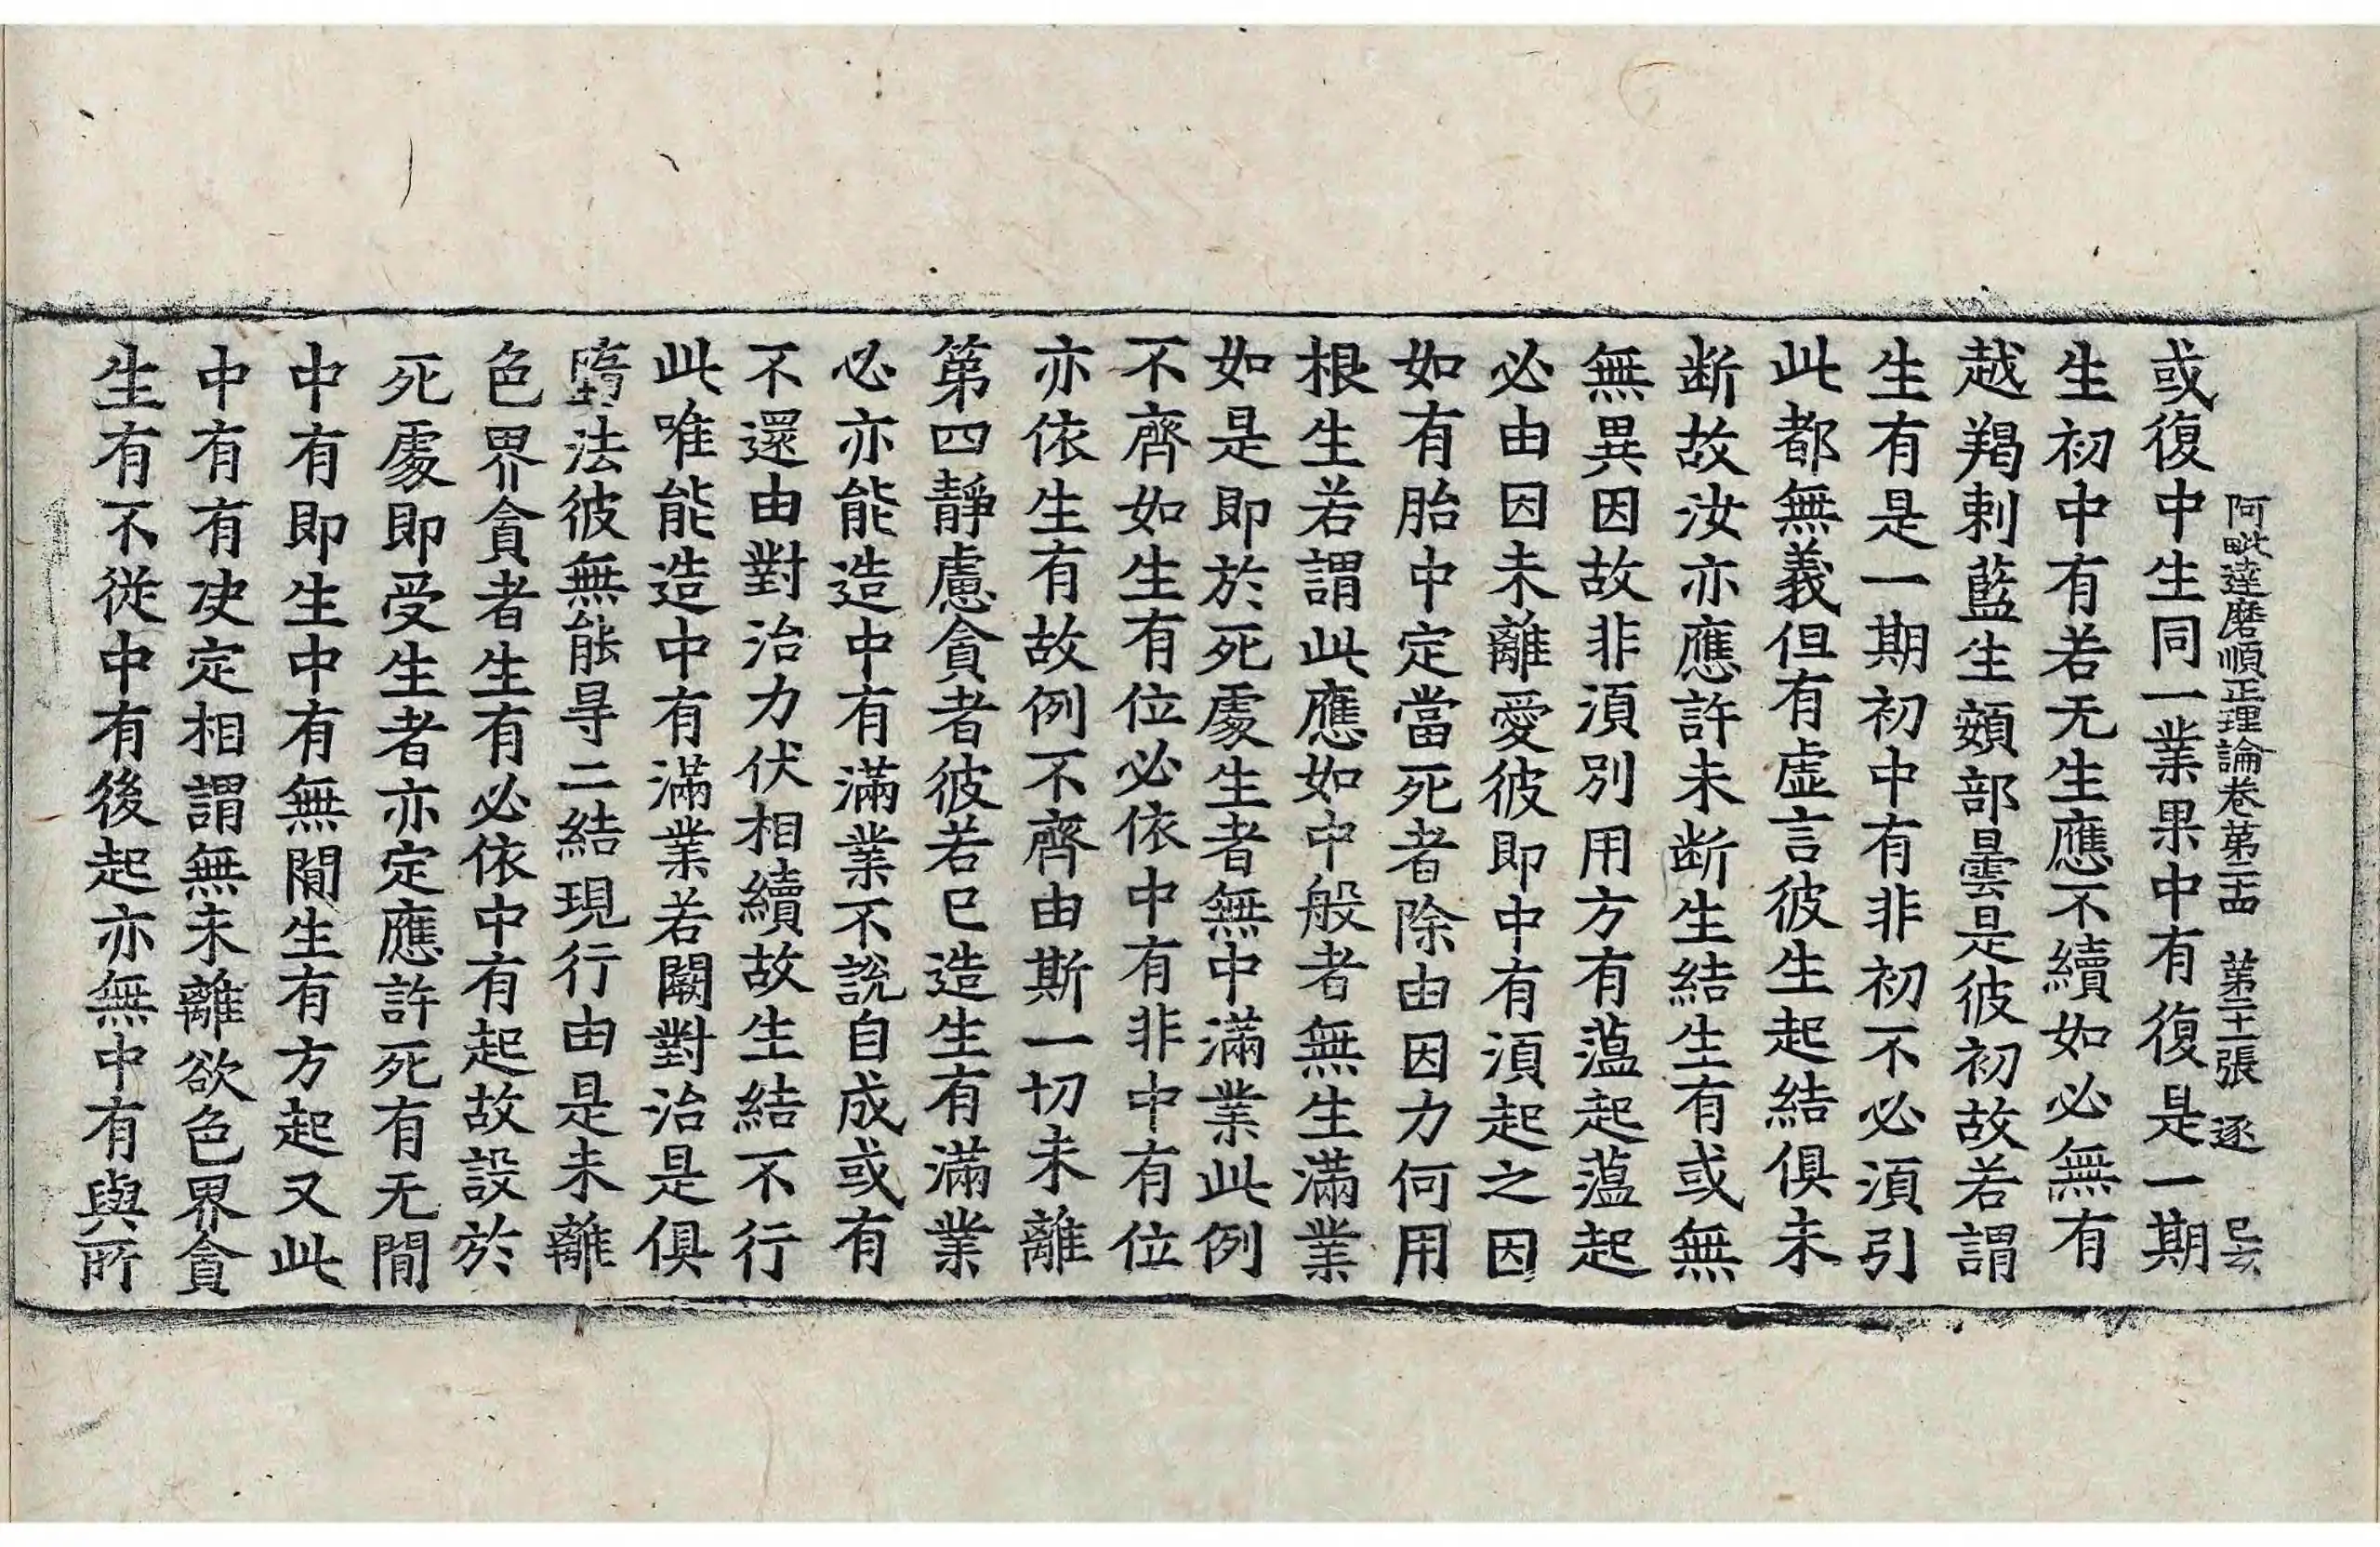 阿毗達磨順正理論卷第二十四 第二十二張 逐 已亥
或復中生同一業果中有復是一期
生初中有若无生應不續如必無有
越羯剌藍生頞部曇是彼初故若謂
生有是一期初中有非初不必湏引
此都無義但有虛言彼生起結俱未
断故汝亦應許未断生結生有或無
無異因故非湏別用方有薀起薀起
必由因未離愛彼即中有湏起之因
如有胎中定當死者除由因力何用
根生若謂此應如中般者無生滿業
如是即於死處生者無中滿業此例
不齊如生有位必依中有非中有位
亦依生有故例不齊由斯一切未離
第四靜慮貪者彼若已造生有滿業
必亦能造中有滿業不說自成或有
不還由對治力伏相續故生結不行
此唯能造中有滿業若闕對治是俱
墮法彼無能尋二結現行由是未離
色界貪者生有必依中有起故設於
死處即受生者亦定應許死有无間
中有即生中有無間生有方起又此
中有有決定相謂無未離欲色界貪
生有不從中有後起亦無中有與所